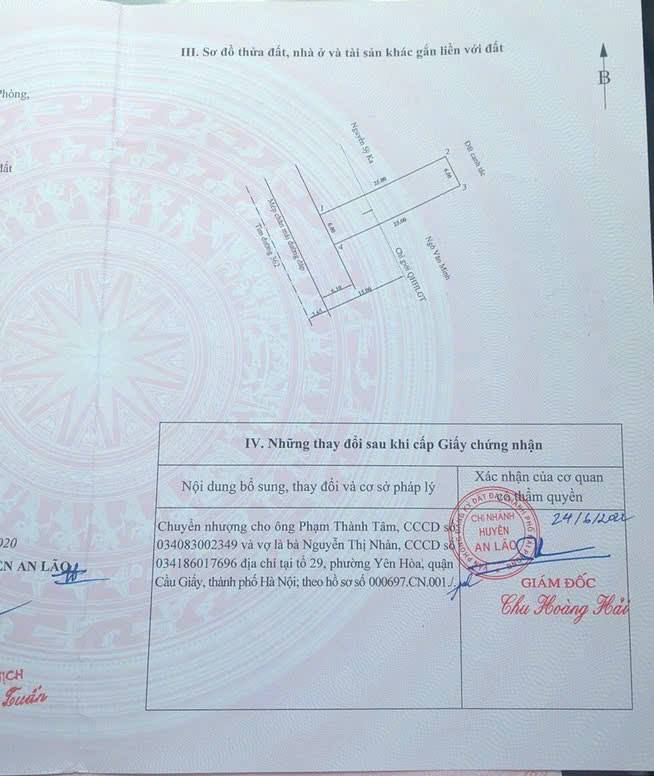 III. Sơ đồ thửa đất, nhà ở và tài sản khác gắn liền với đất
B
Phòng,
đất
Nguyễn Sỹ Ka
2
Đất canh tác
25.00
4.00
3
1
Mép chân mái đường đáp
4.00
25.00
Tim đường 362
Ngô Văn Minh
Chỉ giới QHHLGT
6.10
15.00
7.65
IV. Những thay đổi sau khi cấp Giấy chứng nhận
Nội dung bổ sung, thay đổi và cơ sở pháp lý
Xác nhận của cơ quan
có thẩm quyền
Chuyển nhượng cho ông Phạm Thành Tâm, CCCD số
034083002349 và vợ là bà Nguyễn Thị Nhân, CCCD số
034186017696 địa chỉ tại tổ 29, phường Yên Hòa, quận
Cầu Giấy, thành phố Hà Nội; theo hồ sơ số 000697.CN.001./.
24/6/2022
CHI NHÁNH
HUYỆN
AN LÃO
GIÁM ĐỐC
Chu Hoàng Hải
020
ỆN AN LÃO
TỊCH
Tuấn